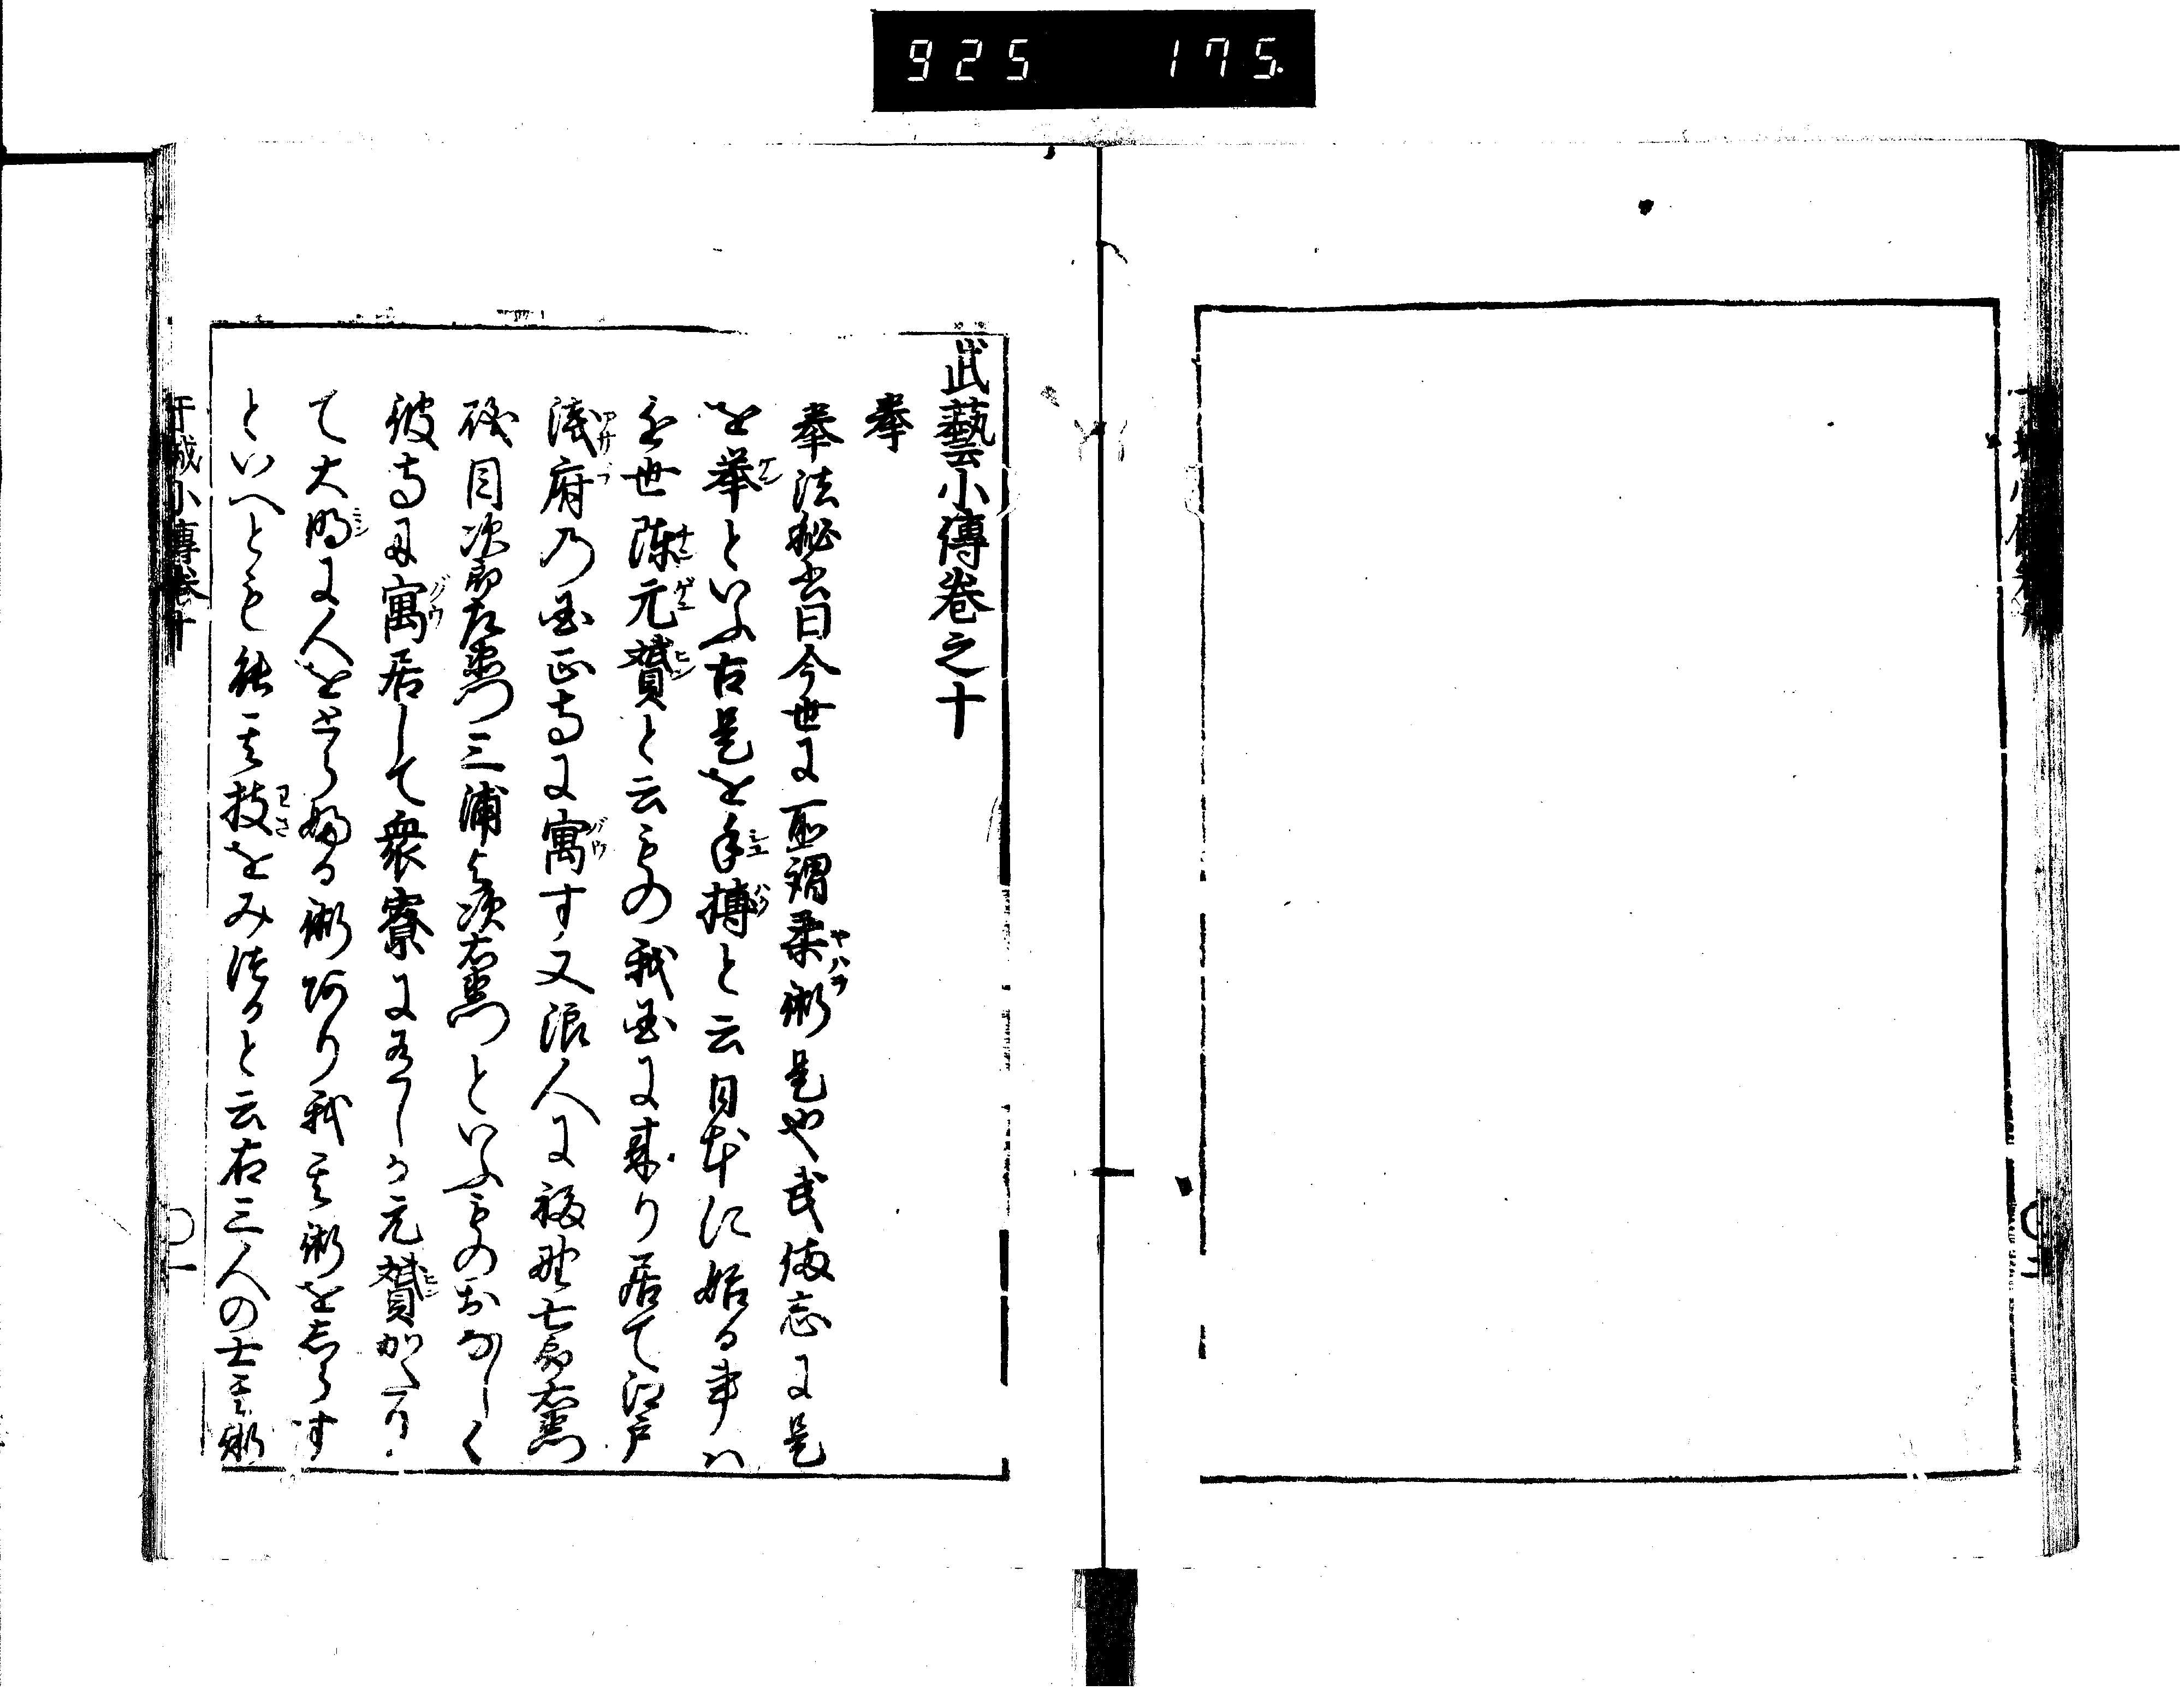 925 175.
武藝小傳卷之十
拳
拳法秘書曰今世に所謂柔術是也武備志に是
を拳といふ古是を手搏と云日本に始る事ハ
近世陳元贇と云もの我国に来り居て江戸
浅府乃国正寺に寓す又浪人に福野七郎右衛門
礒目次郎左衛門三浦与次右衛門といふものおなしく
彼寺に寓居して衆寮に
元贇かたり
て大明に人をとらゆる術あり我其術をしらす
といへとも能其技をみ得ると云右三人の士其術
干城小傳卷十
〇一